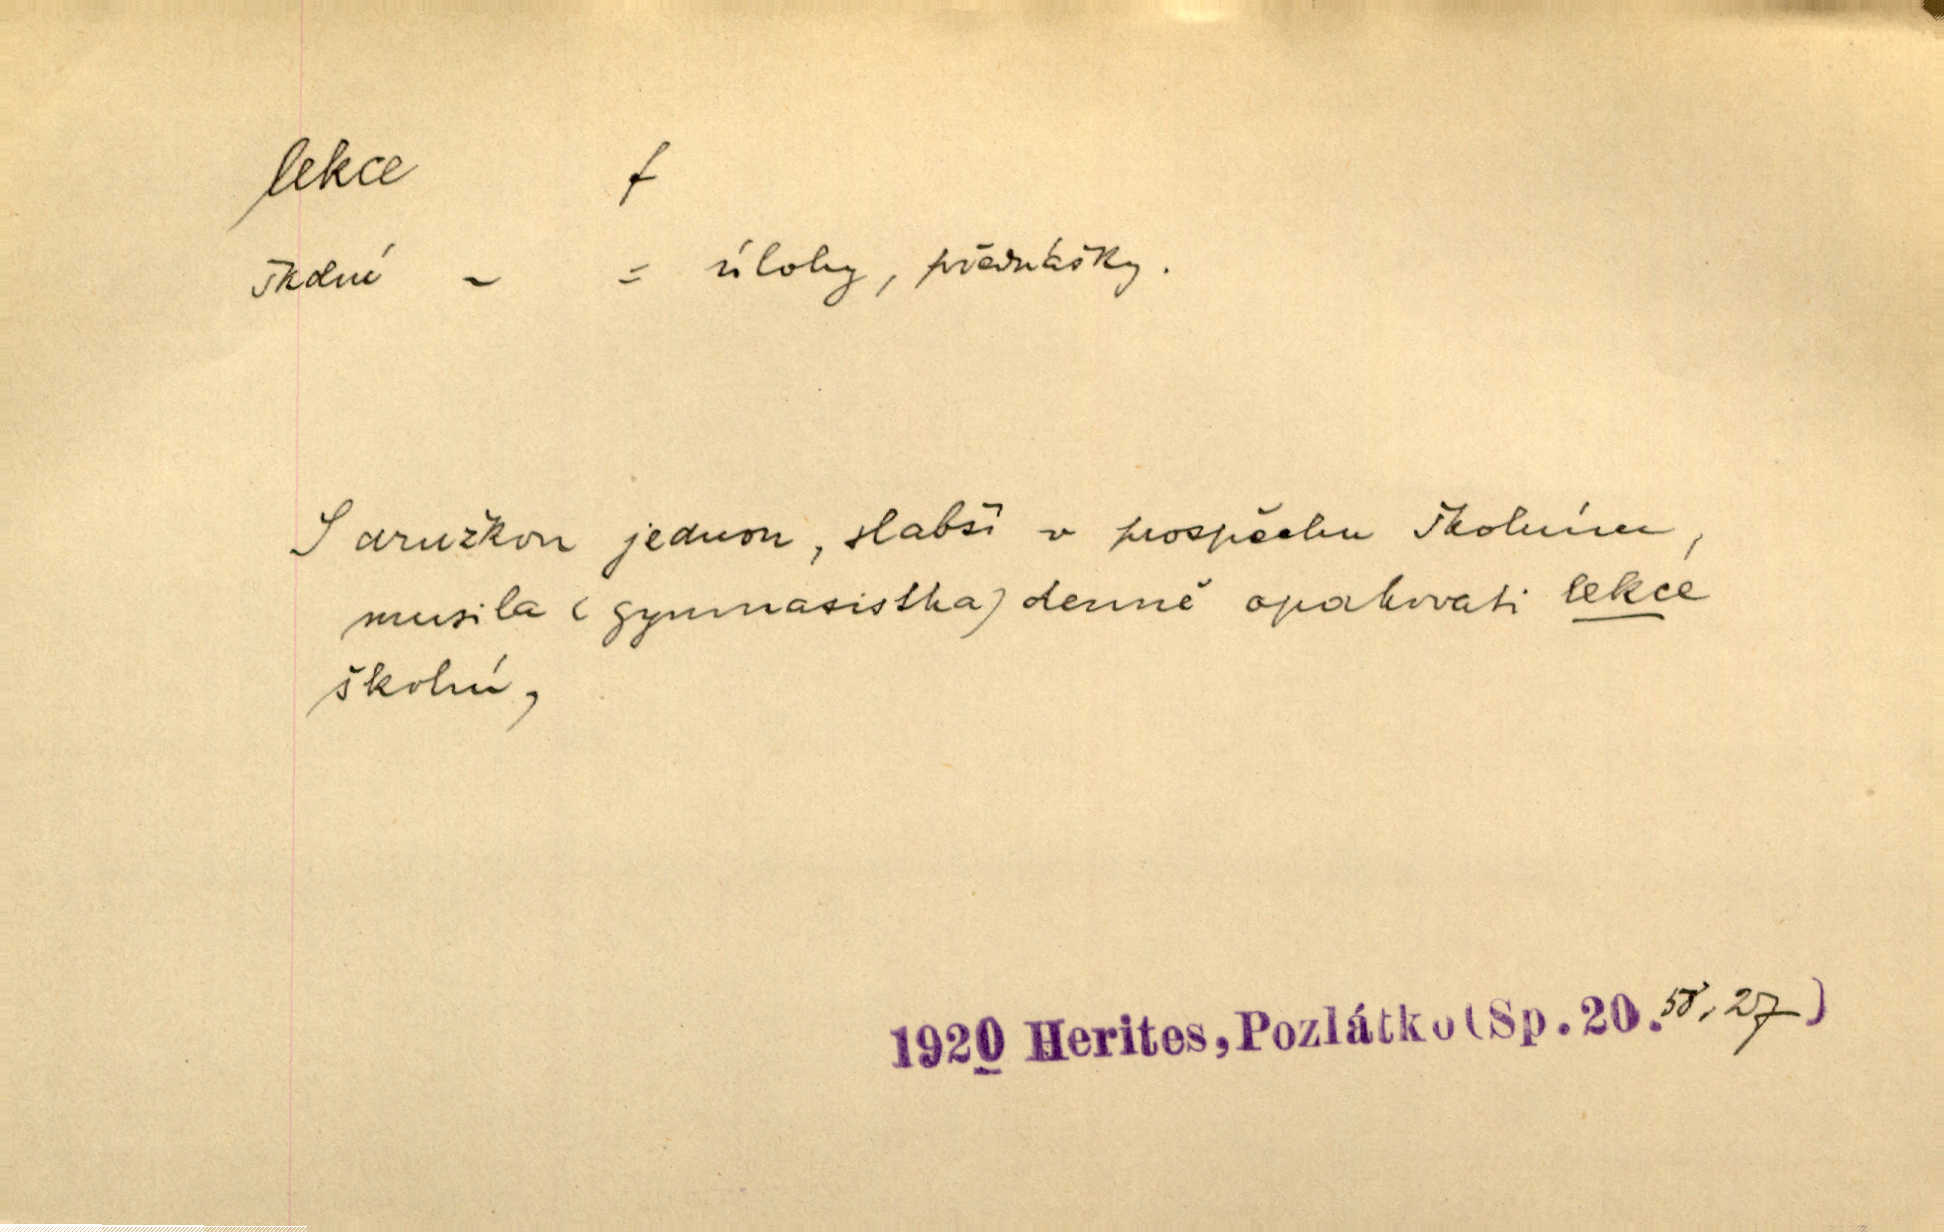 lekce f
školní ~ = úlohy, přednášky.
S družkou jednou, slabší v prospěchu školním,
musila (gymnasistka) denně opakovati lekce
školní,
1920 Herites, Pozlátko (Sp. 20. 58, 27)